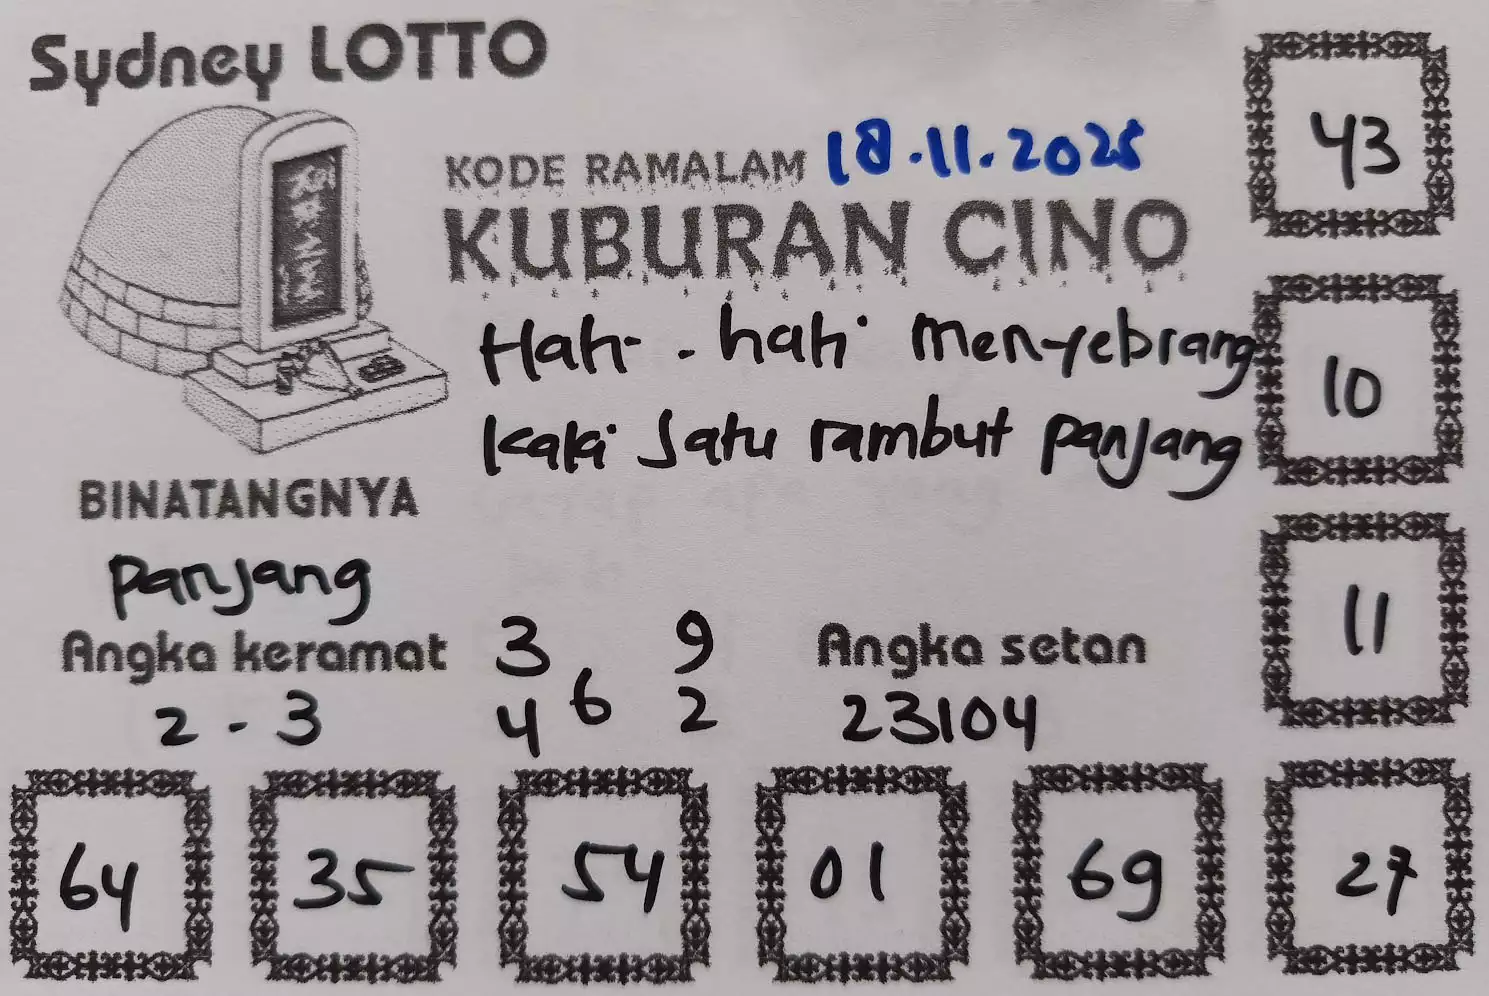 Sydney LOTTO
KODE RAMALAM 18.11.2025
KUBURAN CINO
Hati - hati menyebrang
kaki satu rambut panjang
BINATANGNYA
panjang
Angka keramat
2 - 3
3 9
6
4 2
Angka setan
23104
43
10
11
64
35
54
01
69
27